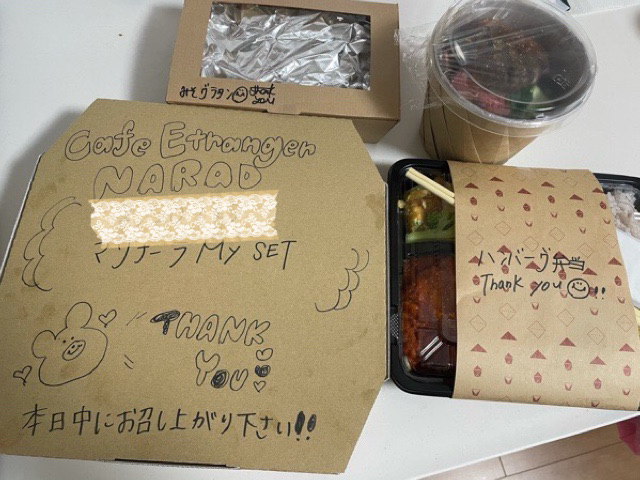 みそグラタン
thank
you
Cafe Etranger
NARAD
マリナーラ MY SET
THANK
YOU
本日中にお召し上がり下さい!!
ハンバーグ弁当
Thank you !!